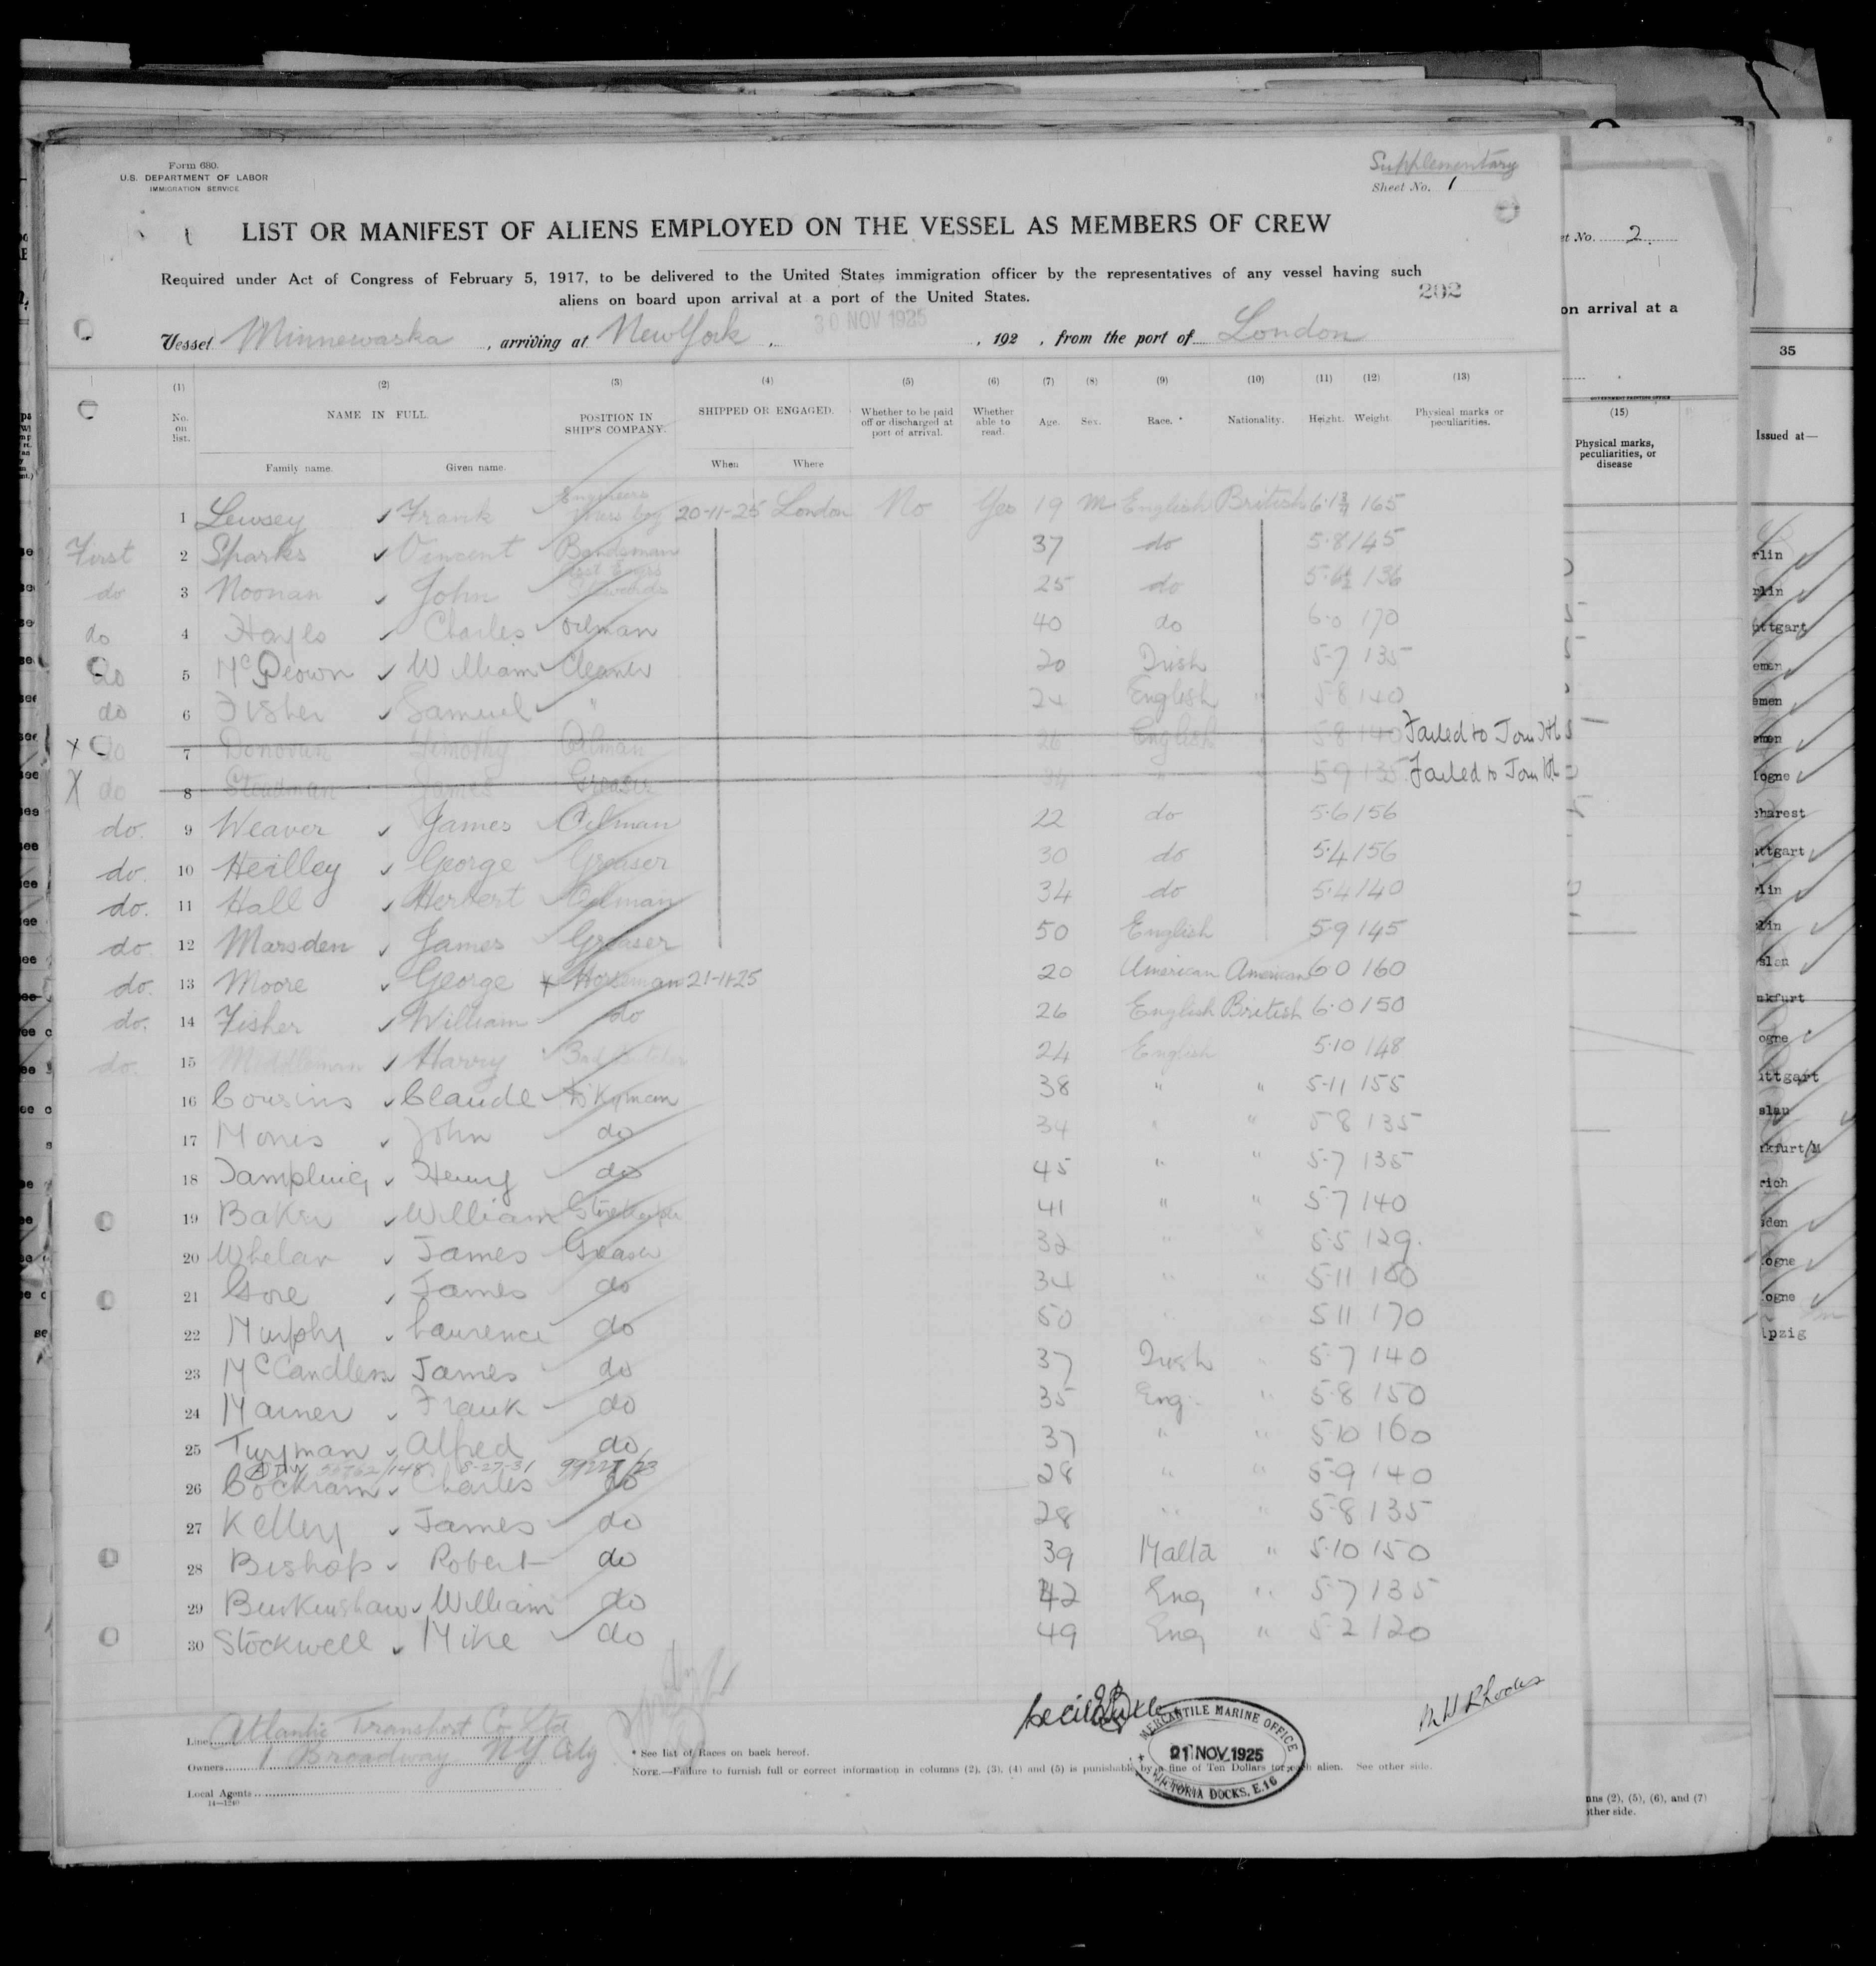 Form 680.
U.S. DEPARTMENT OF LABOR
IMMIGRATION SERVICE
Supplementary
Sheet No. 1
LIST OR MANIFEST OF ALIENS EMPLOYED ON THE VESSEL AS MEMBERS OF CREW
Required under Act of Congress of February 5, 1917, to be delivered to the United States immigration officer by the representatives of any vessel having such
aliens on board upon arrival at a port of the United States.
202
30 NOV 1925
Vessel Minnewaska, arriving at New York, , 192 , from the port of London
(1) (2) (3) (4) (5) (6) (7) (8) (9) (10) (11) (12) (13)
No. on list. NAME IN FULL. POSITION IN SHIP'S COMPANY. SHIPPED OR ENGAGED. Whether to be paid off or discharged at port of arrival. Whether able to read. Age. Sex. Race.* Nationality. Height. Weight. Physical marks or peculiarities.
Family name. Given name. When Where
1 Lewsey Frank Engineers boy 20-11-25 London No Yes 19 M English British 6.1 165
First 2 Sparks Vincent Bandsman 37 do 5.8 145
do 3 Noonan John Stewards 25 do 5.6½ 136
do 4 Hayes Charles Oilman 40 do 6.0 170
do 5 William Cleaner 20 Irish 5-7 135
do 6 Fisher Samuel " 24 English " 5.8 140
X do 7 Donovan Timothy Oilman 26 English " 5.8 140 Failed to Join
X do 8 Steadman James Greaser 34 " 5 9 135 Failed to Join
do. 9 Weaver James Oilman 22 do 5.6 156
do. 10 Heilley George Greaser 30 do 5.4 156
do. 11 Hall Herbert Oilman 34 do 5.4 140
do. 12 Marsden James Greaser 50 English 5.9 145
do. 13 Moore George Horseman 21-11-25 20 American American 6 0 160
do. 14 Fisher William do 26 English British 6.0 150
do. 15 Middleman Harry 24 English 5.10 148
16 Cousins Claude 38 " " 5-11 155
17 John do 34 " " 5 8 135
18 Tampling Henry do 45 " " 5.7 135
19 Baker William Storekeeper 41 " " 5.7 140
20 Whelan James Greaser 32 " " 5.5 129.
21 Gore James do 34 " " 5-11 160
22 Murphy Laurence do 50 5 11 170
23 McCandless James do 37 Irish " 5-7 140
24 Marner Frank do 35 Eng. " 5.8 150
25 Turpman Alfred do 37 " " 5.10 160
8-27-31
26 Cockram Charles do 28 " " 5-9 140
27 Kelley James do 28 " " 5-8 135
28 Bishop Robert do 39 Malta " 5.10 150
29 Burkinshaw William do 42 Eng " 5-7 135
30 Stockwell Mike do 49 Eng " 5-2 120
Line Atlantic Transport Co Ltd
Owners 1 Broadway NY City
Local Agents
14—1240
* See list of Races on back hereof.
NOTE.—Failure to furnish full or correct information in columns (2), (3), (4) and (5) is punishable by a fine of Ten Dollars for each alien. See other side.
MERCANTILE MARINE OFFICE
21 NOV 1925
VICTORIA DOCKS, E.16
Rhodes
No. 2.
on arrival at a
(15)
Physical marks,
peculiarities, or
disease
(2), (5), (6), and (7)
other side.
35
Issued at—